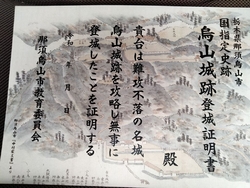 栃木県那須烏山市
国指定史跡
烏山城跡登城証明書
殿
貴台は難攻不落の名城
烏山城跡を攻略し無事に
登城したことを証明する
令和 年 月 日
那須烏山市教育委員会